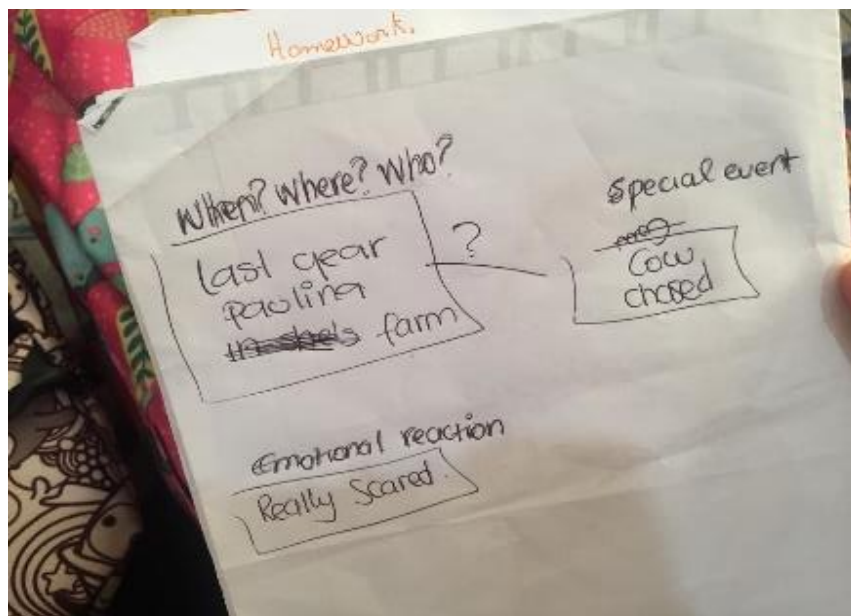 Homework.
When? Where? Who?
last year
paulina
farm
?
Special event
Cow
chased
Emotional reaction
Really Scared.